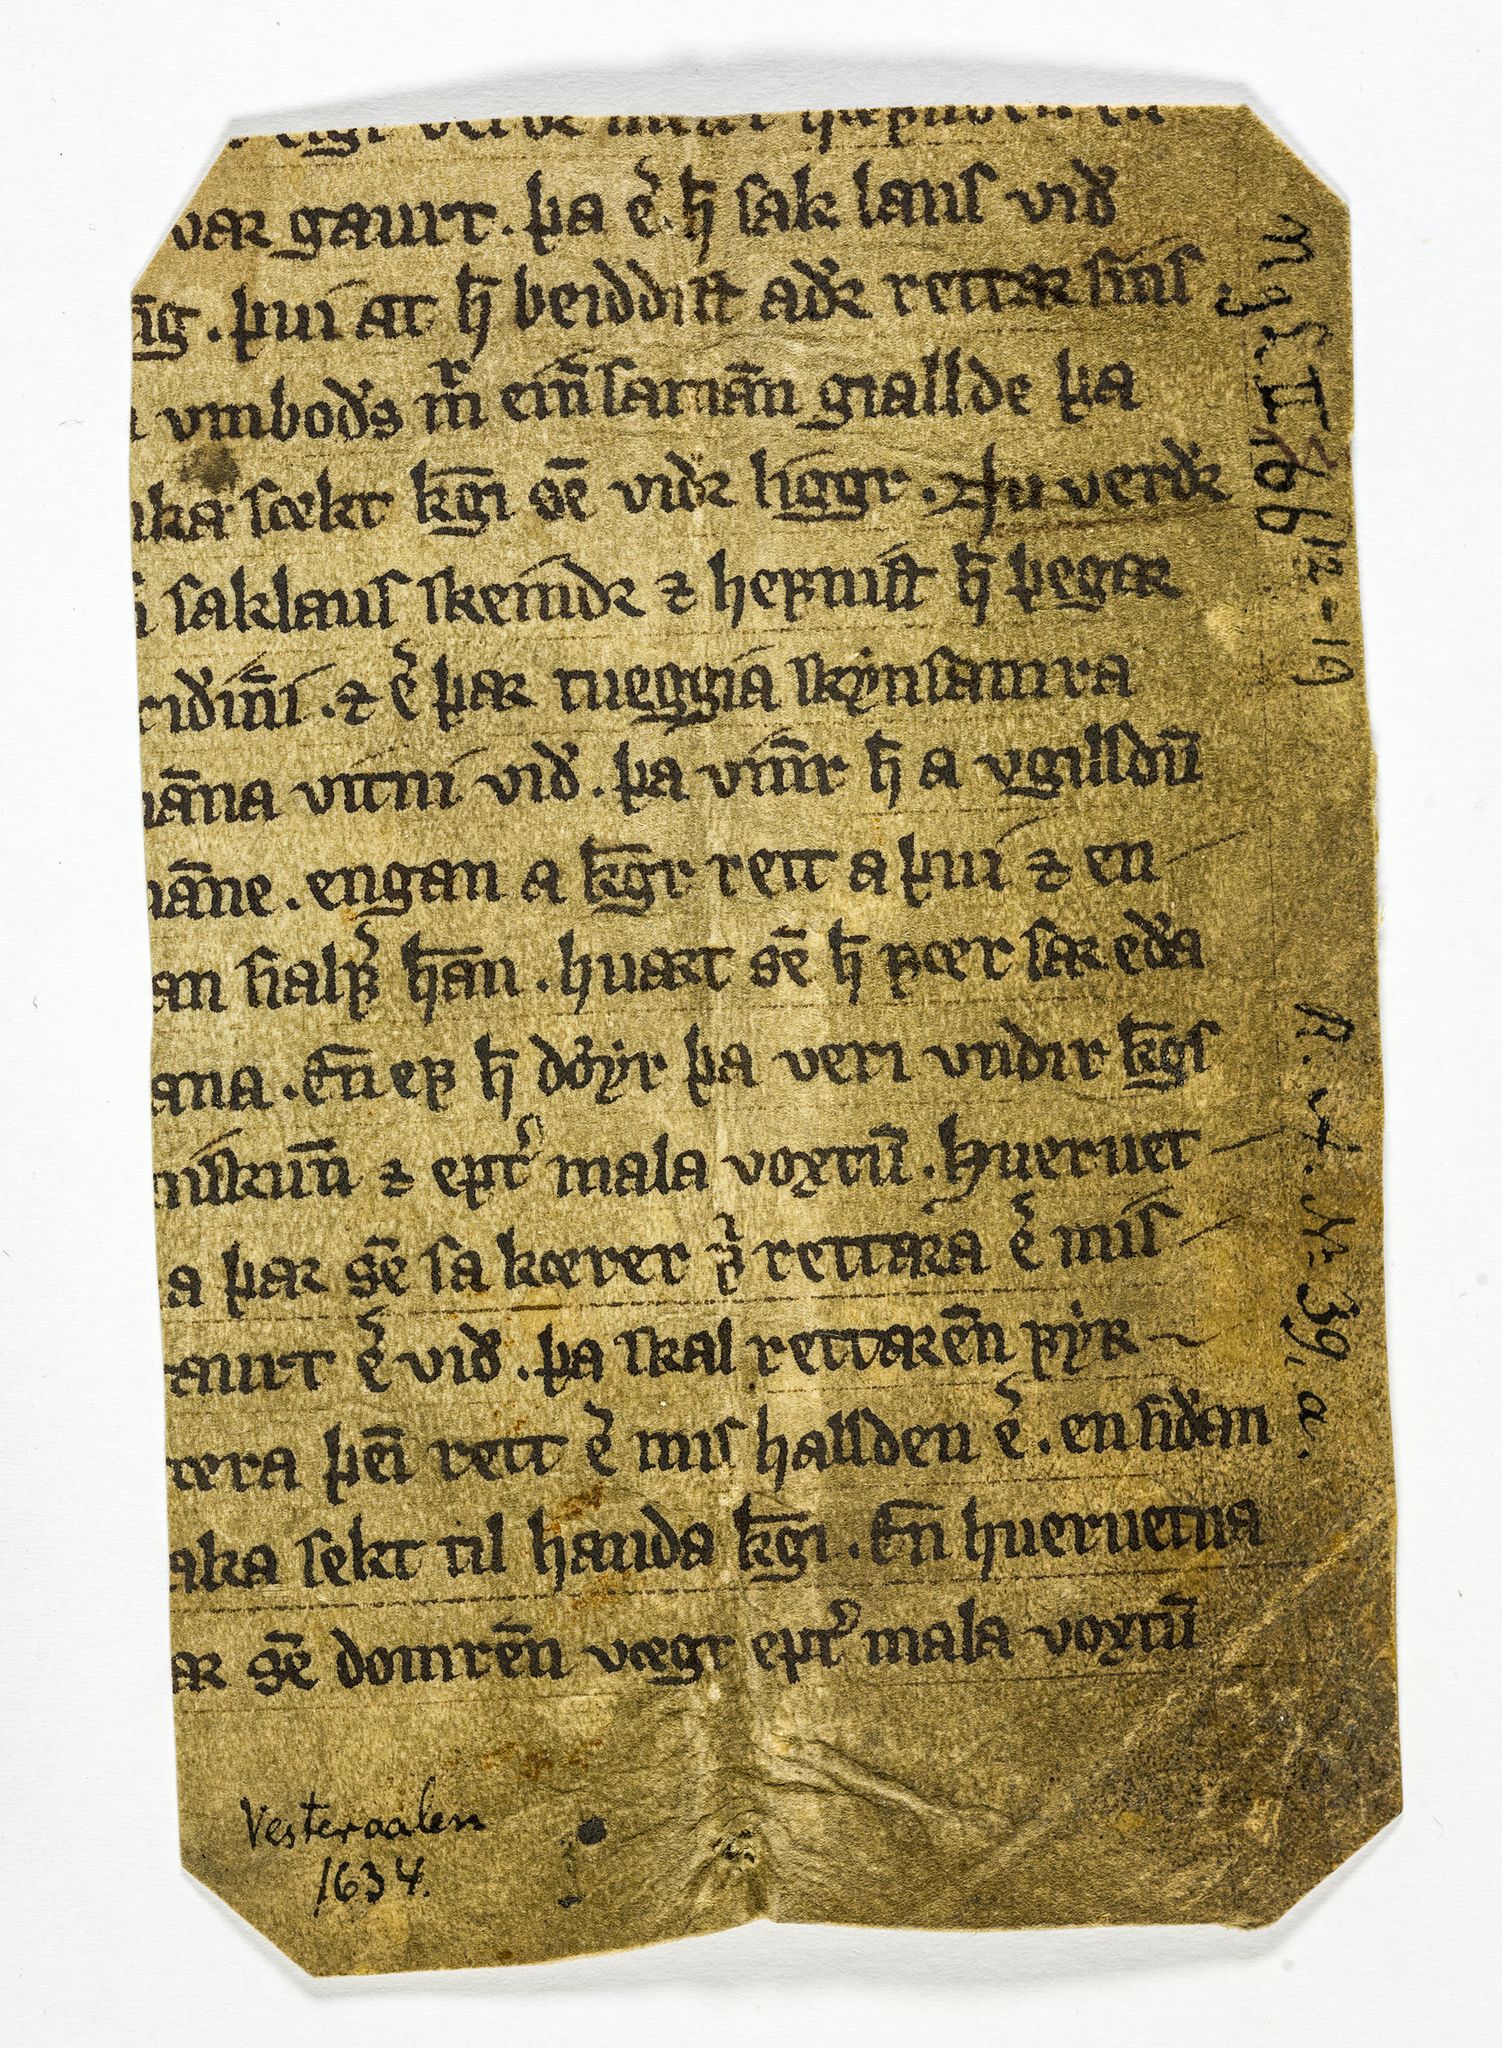 var gaurt. þa e͛ h̄ sak laus við
sig. þui at h̄ beiddist aðꝛ rettar sins.
vmboðs mͬ ein̄ samān giallde þa
aka sœkt kḡi sē viðꝛ liggr. Nu verðꝛ
saklaus skeindꝛ ⁊ hefnist h̄ þegar
riðin̄i. ⁊ e͛ þar tueggia skynsamra
māna vitni við. þa vin̄r h̄ a vgilldū
māne. engan a kḡr rett a þui ⁊ en
an sialf͛ hān. huart sē h̄ fœr sar eða
ana. En̄ ef h̄ dꜹyr þa veri vndir kḡs
miskun̄ ⁊ ept͛ mala voxtū. Hueruet
a þar sē sa kœrer fͥ rettara e͛ mis
gaurt e͛ við. þa skal rettarēn fyꝛ
rera þei̅ rett e͛ mis hallden e͛. en siðan
aka sekt til handa kḡi. En̄ hueruetna
ar sē domrēn vœgr ept͛ mala voxtū
Vesteraalen
1634.
NgL II 66 12-19
R. A. Nr 39, a.